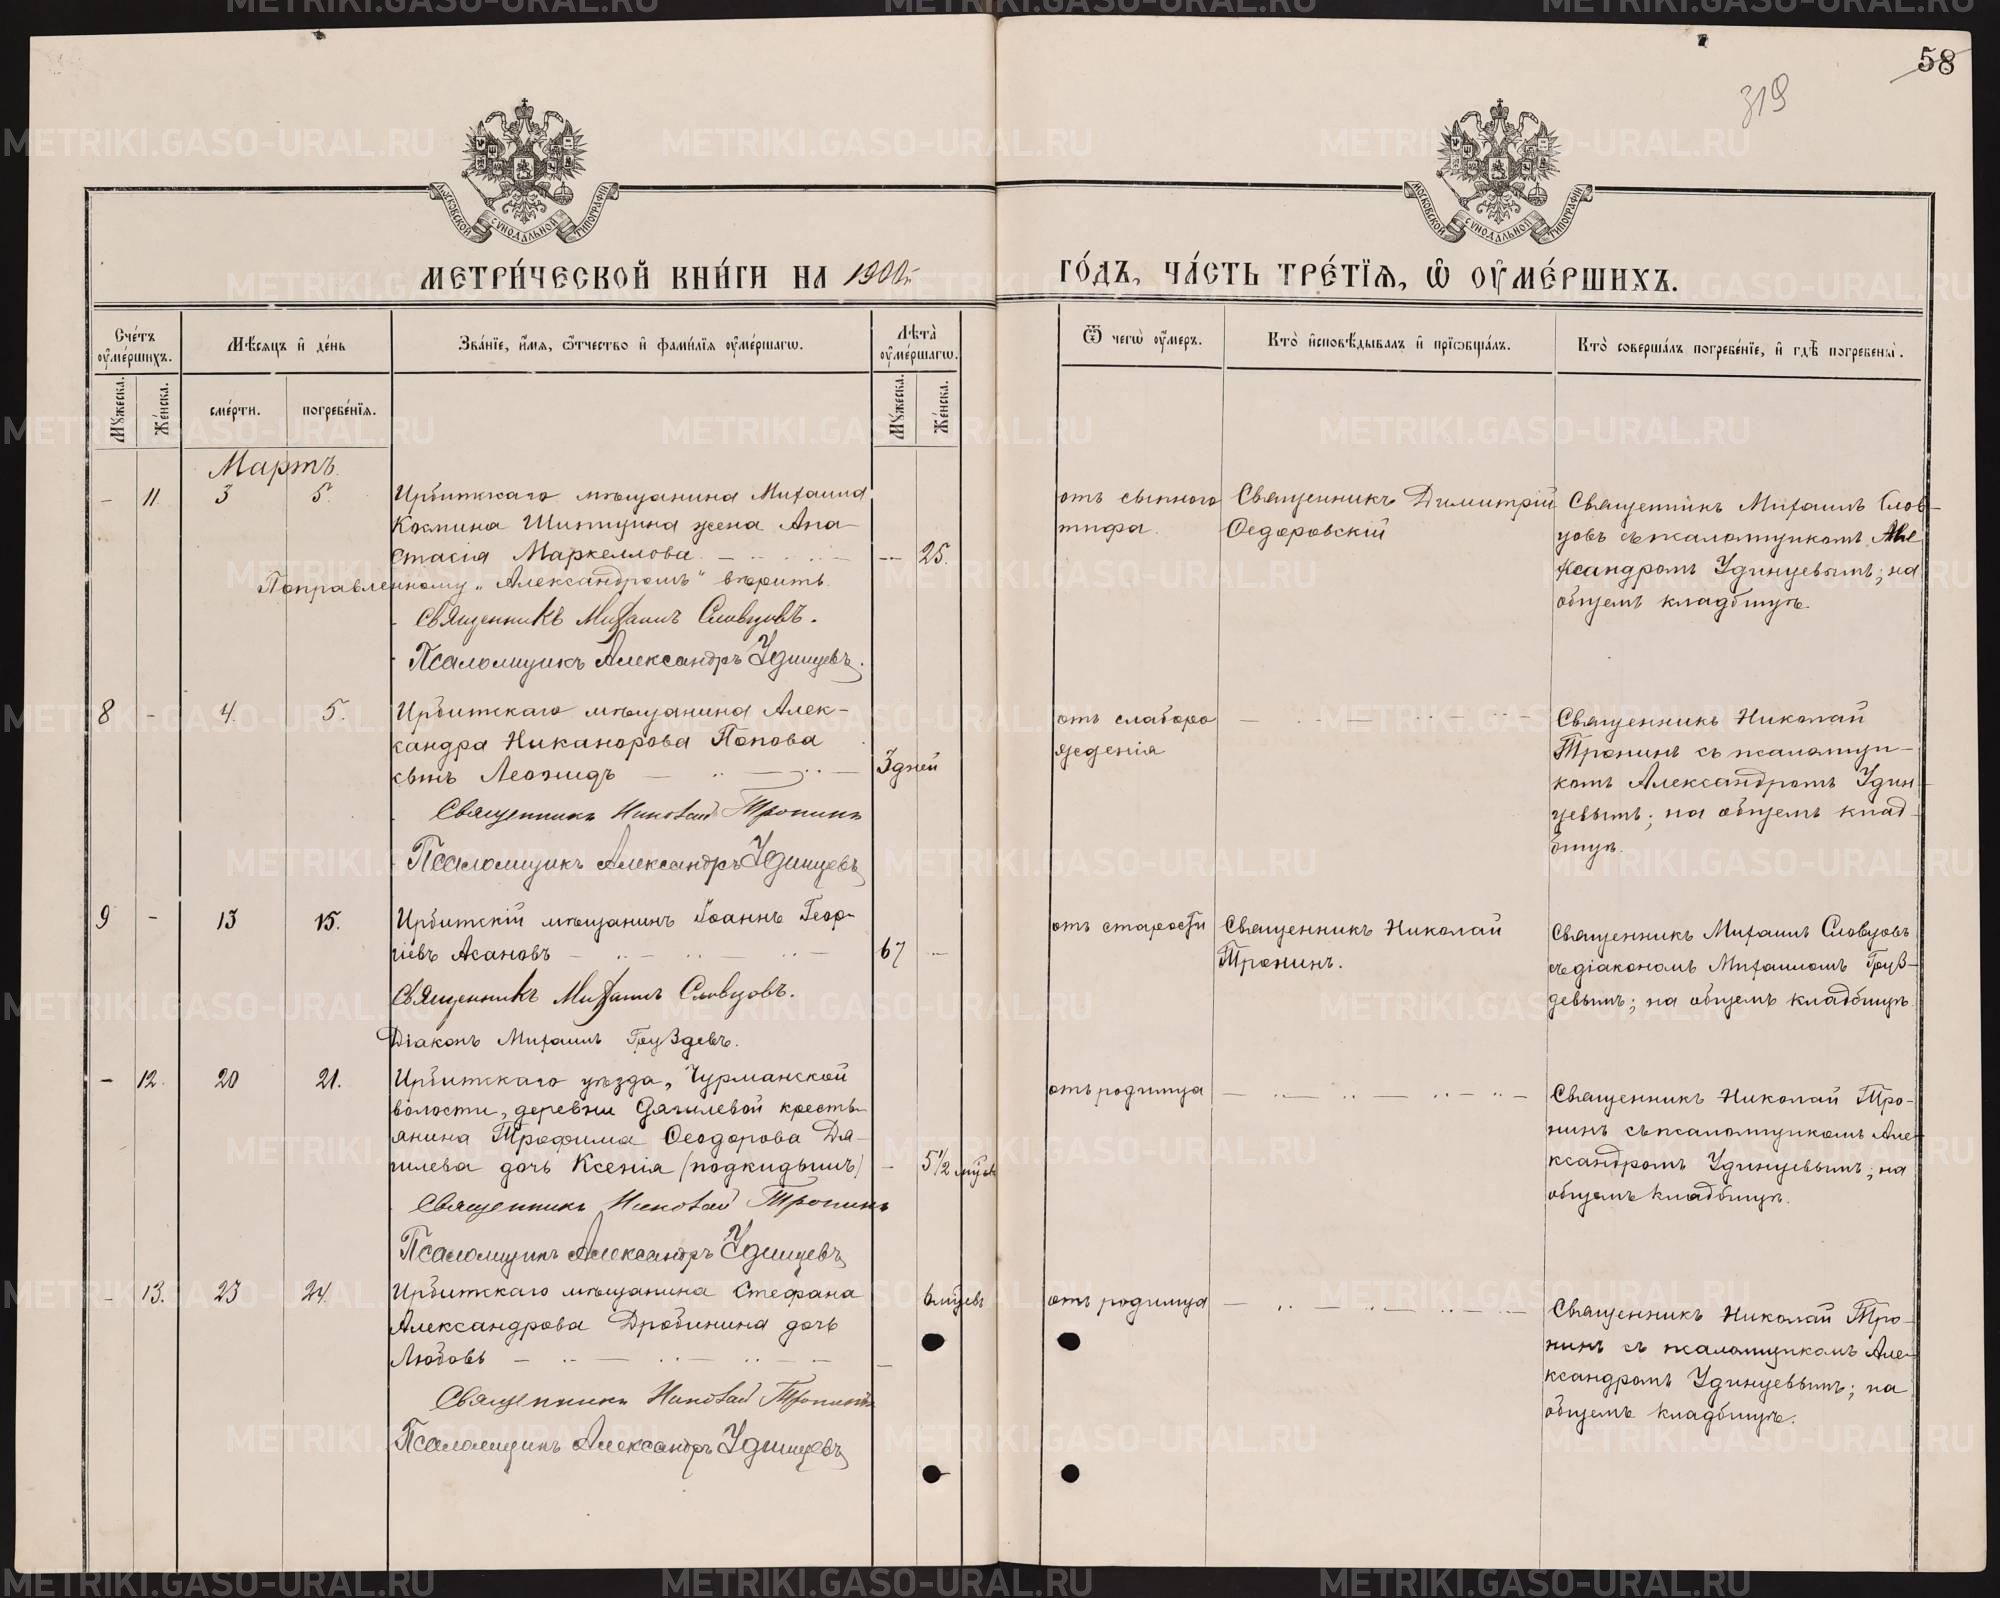 58
319
МОСКОВСКОЙ СѴНОДАЛЬНОЙ ТИПОГРАФІИ
МОСКОВСКОЙ СѴНОДАЛЬНОЙ ТИПОГРАФІИ
МЕТРИ́ЧЕСКОЙ КНИ́ГИ НА 1900й
ГО́ДЪ, ЧА́СТЬ ТРЕ́ТІѦ, Ѡ ОУМЕ́РШИХЪ.
Сче́тъ оумершихъ.
Мѣсяцъ и день
Зва́нїе, и҆мя, ѿчество и фамилїя оумершагѡ.
Лѣта оумершагѡ.
Ѿ чегѡ оумеръ.
Кто исповѣдывалъ и прїобщалъ.
Кто совершалъ погребенїе, и гдѣ погребены.
Мꙋжеска.
Женска.
смерти.
погребенїя.
Мꙋжеска.
Женска.
Мартъ.
- 11. 3 5. Ирбитскаго мѣщанина Михаила
Космина Шипицина жена Ана-
стасія Маркеллова — 25.
Поправленному „Александромъ“ вѣрить.
Священникъ Михаилъ Словцовъ.
Псаломщикъ Александръ Удинцевъ.
отъ сыпного
тифа.
Священникъ Димитрій
Ѳедоровскій
Священникъ Михаилъ Слов-
цовъ съ псаломщикомъ Але
ксандромъ Удинцевымъ; на
общемъ кладбищѣ.
8 - 4. 5. Ирбитскаго мѣщанина Алек-
сандра Никанорова Попова
сынъ Леонидъ — 3 дней
Священникъ Николай Тронинъ
Псаломщикъ Александръ Удинцевъ
отъ слаборо
жденія
Священникъ Николай
Тронинъ съ псаломщи-
комъ Александромъ Удин-
цевымъ; на общемъ клад-
бищѣ.
9 - 13 15. Ирбитскій мѣщанинъ Іоаннъ Геор-
гіевъ Асановъ — 67 —
Священникъ Михаилъ Словцовъ.
Діаконъ Михаилъ Груздевъ.
отъ старости
Священникъ Николай
Тронинъ.
Священникъ Михаилъ Словцовъ
съ діакономъ Михаиломъ Груз-
девымъ; на общемъ кладбищѣ
- 12. 20 21. Ирбитскаго уѣзда, Чурманской
волости, деревни Дягилевой кресть-
янина Трофима Ѳеодорова Дя-
гилева дочь Ксенія (подкидышъ) - 5 1/2 мѣсяц
Священникъ Николай Тронинъ
Псаломщикъ Александръ Удинцевъ
отъ родимца
Священникъ Николай Тро-
нинъ съ псаломщикомъ Але-
ксандромъ Удинцевымъ; на
общемъ кладбищѣ.
- 13. 23 24. Ирбитскаго мѣщанина Стефана
Александрова Дробинина дочь
Любовь — 6 мѣсяцевъ
Священникъ Николай Тронинъ
Псаломщикъ Александръ Удинцевъ
отъ родимца
Священникъ Николай Тро-
нинъ съ псаломщикомъ Але-
ксандромъ Удинцевымъ; на
общемъ кладбищѣ.
METRIKI.GASO-URAL.RU